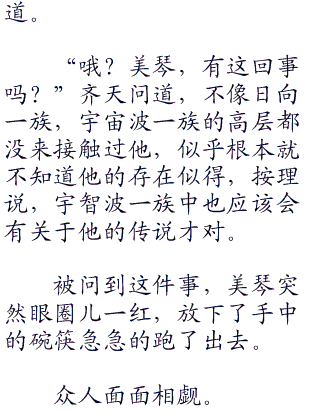 道。
“哦？美琴，有这回事
吗？”齐天问道，不像日向
一族，宇宙波一族的高层都
没来接触过他，似乎根本就
不知道他的存在似得，按理
说，宇智波一族中也应该会
有关于他的传说才对。
被问到这件事，美琴突
然眼圈儿一红，放下了手中
的碗筷急急的跑了出去。
众人面面相觑。